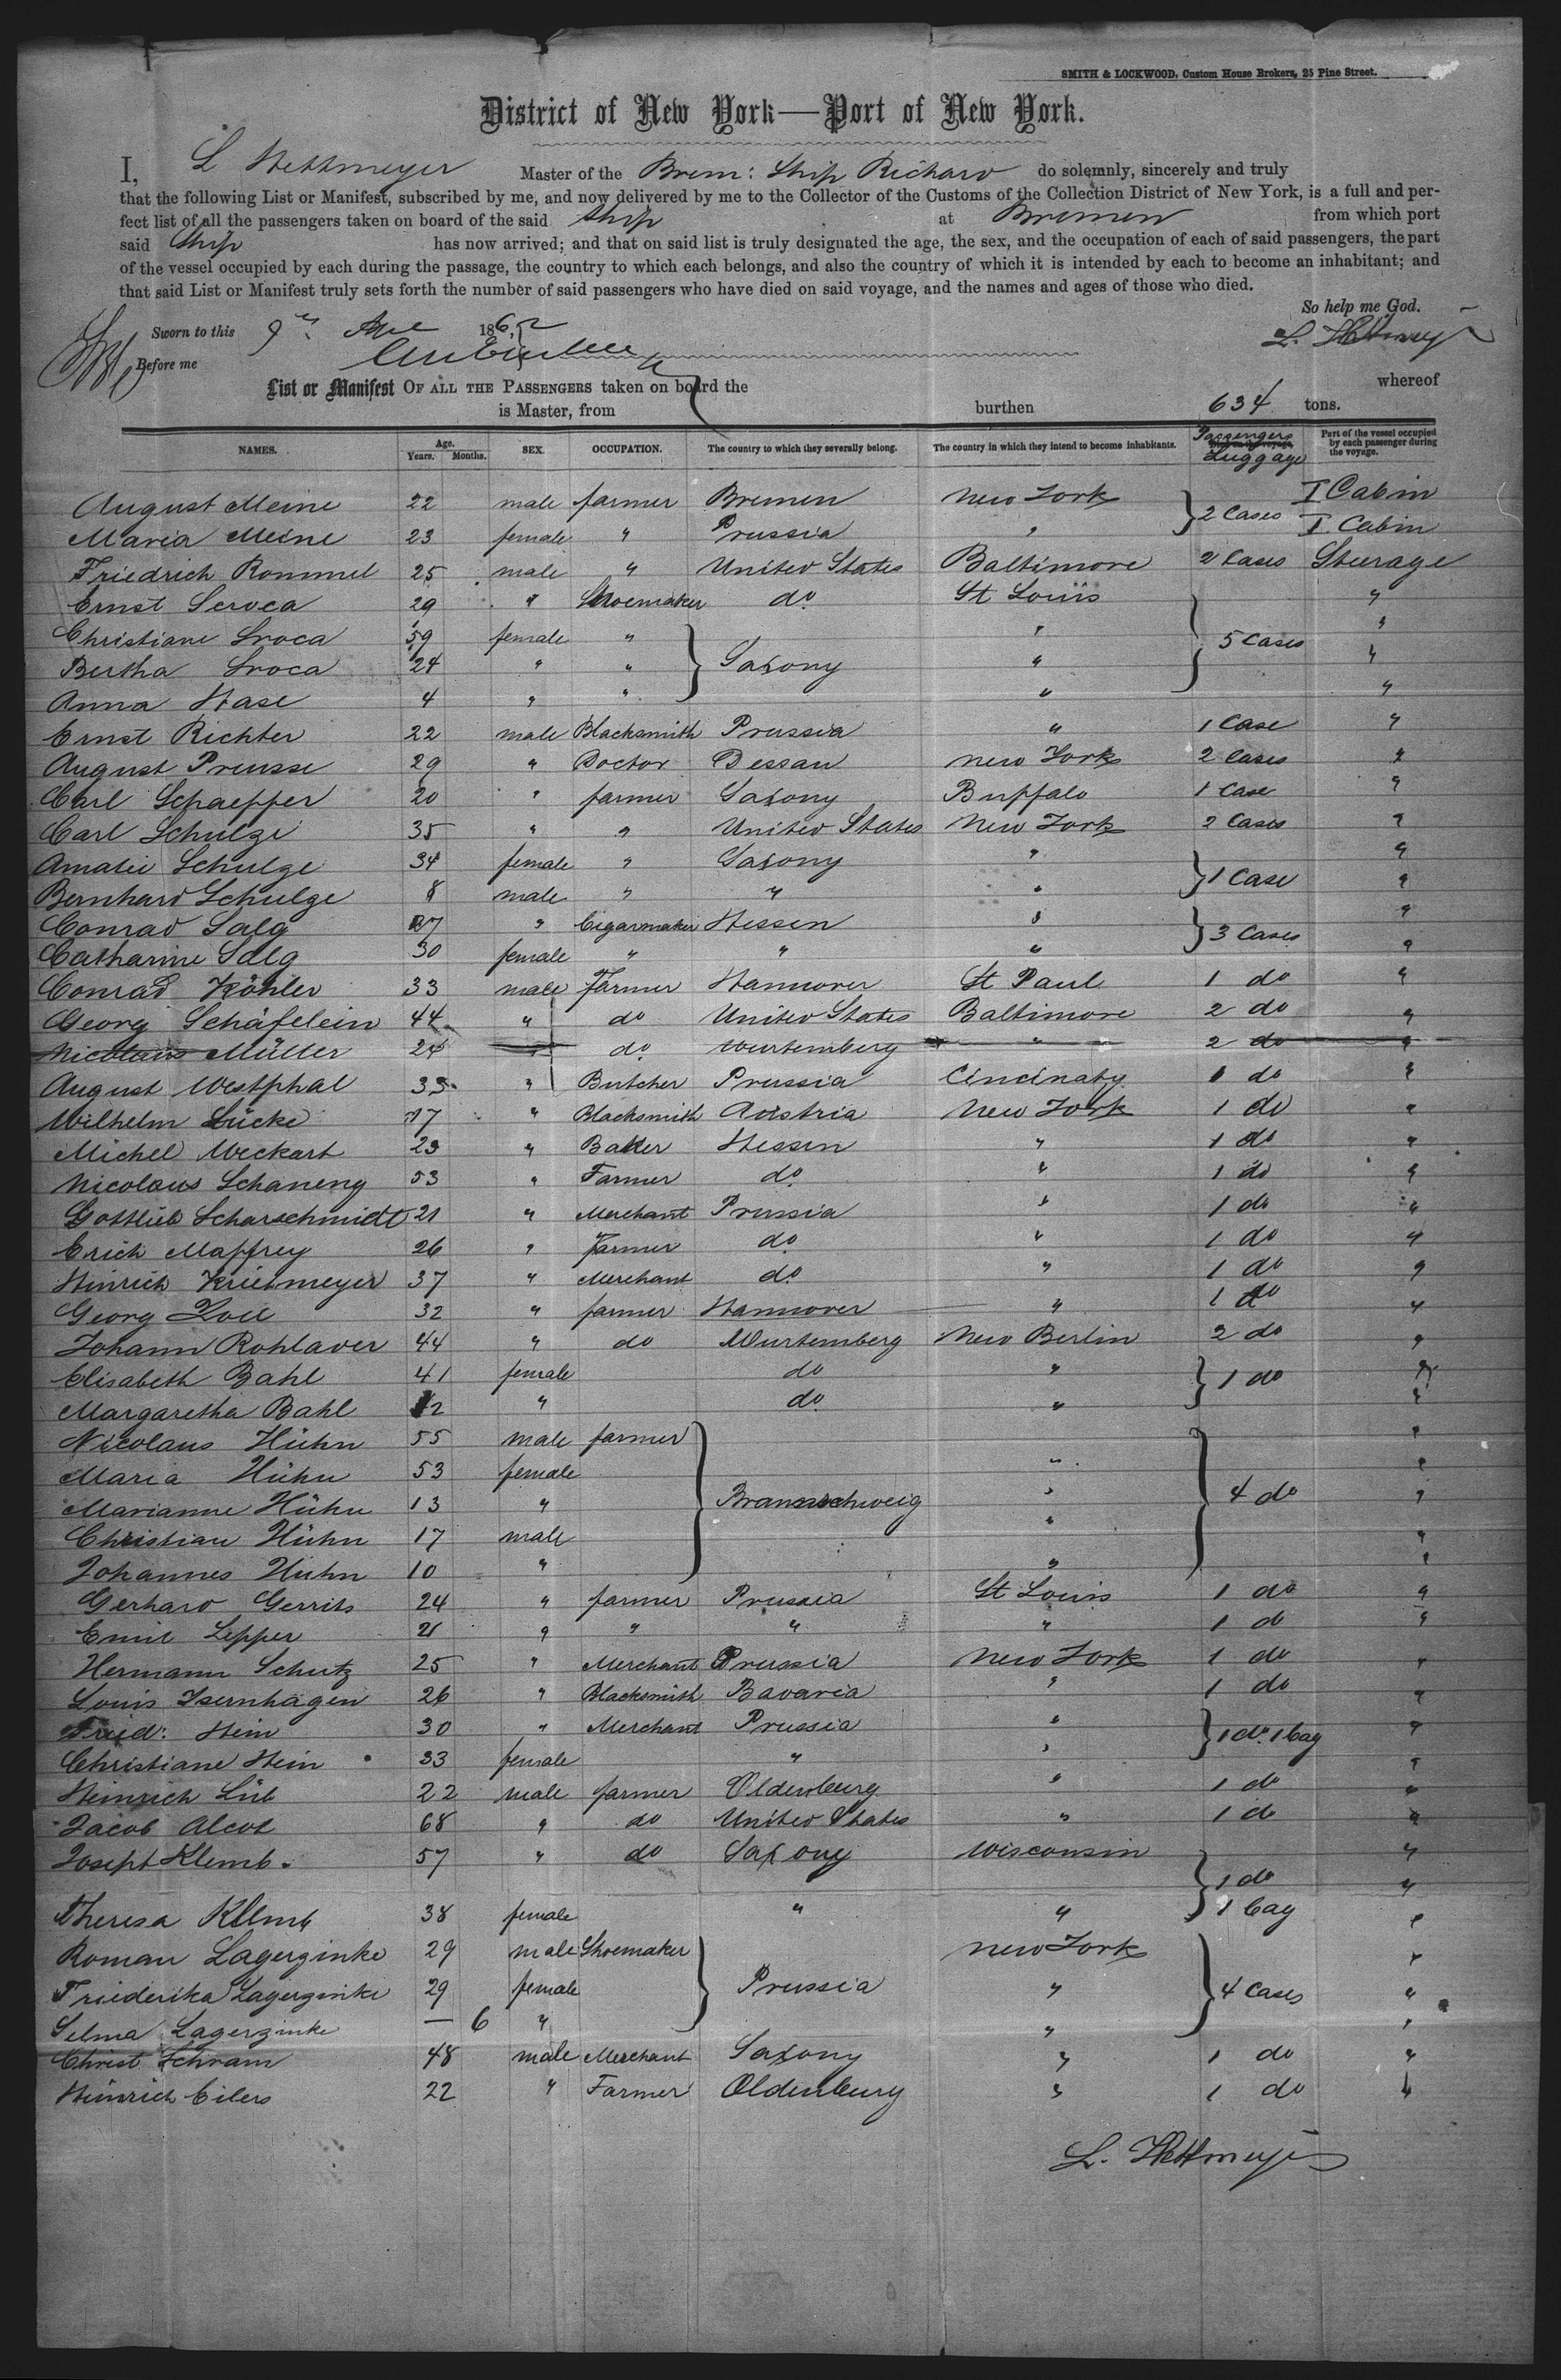 SMITH & LOCKWOOD, Custom House Brokers, 25 Pine Street.
District of New York—Port of New York.
I, L Hettmeyer Master of the Brem: Ship Richard do solemnly, sincerely and truly
that the following List or Manifest, subscribed by me, and now delivered by me to the Collector of the Customs of the Collection District of New York, is a full and per-
fect list of all the passengers taken on board of the said Ship at Bremen from which port
said Ship has now arrived; and that on said list is truly designated the age, the sex, and the occupation of each of said passengers, the part
of the vessel occupied by each during the passage, the country to which each belongs, and also the country of which it is intended by each to become an inhabitant; and
that said List or Manifest truly sets forth the number of said passengers who have died on said voyage, and the names and ages of those who died.
So help me God.
Sworn to this 9 1862 L. Hettmeyer
Before me
List or Manifest OF ALL THE PASSENGERS taken on board the whereof
is Master, from burthen 634 tons.
NAMES. Age. Years. Months. SEX. OCCUPATION. The country to which they severally belong. The country in which they intend to become inhabitants. Passengers Luggage Part of the vessel occupied by each passenger during the voyage.
August Meine 22 male farmer Bremen New York } 2 Cases I Cabin
Maria Meine 23 female " Prussia " I Cabin
Friedrich Rommel 25 male " United States Baltimore 2 Cases Steurage
Ernst Seroca 29 " Shoemaker do St Louis "
Christiane Sroca 59 female " " 5 Cases "
Bertha Sroca 24 " " } Saxony " "
Anna Hase 4 " " " "
Ernst Richter 22 male Blacksmith Prussia " 1 Case "
August Preusse 29 " Doctor Dessau New York 2 Cases "
Carl Schaeffer 20 " farmer Saxony Buffalo 1 Case "
Carl Schulze 35 " " United States New York 2 Cases "
Amalie Schulze 34 female " Saxony " } 1 Case "
Bernhard Schulze 8 male " " " "
Conrad Salg 37 " Cigarmaker Hessen " } 3 Cases "
Catharine Salg 30 female " " " "
Conrad Köhler 33 male Farmer Hannover St Paul 1 do "
Georg Schäfelein 44 " do United States Baltimore 2 do "
Nicolaus Müller 24 " do Wurtemberg " 2 do "
August Westphal 33 " Butcher Prussia Cincinaty 1 do "
Wilhelm Lücke 17 " Blacksmith Austria New York 1 do "
Michel Weckart 23 " Baker Hessen " 1 do "
Nicolaus Schaneng 53 " Farmer do " 1 do "
Gottlieb Scharschmidt 21 " Merchant Prussia " 1 do "
Erich Maffrey 26 " farmer do " 1 do "
Hinrich Krietmeyer 37 " Merchant do " 1 do "
Georg Zoll 32 " farmer Hannover " 1 do "
Johann Rohlaver 44 " do Wurtemberg New Berlin 2 do "
Elisabeth Bahl 41 female do " } 1 do "
Margaretha Bahl 12 " do " "
Nicolaus Hühn 55 male farmer "
Maria Hühn 53 female " "
Marianne Hühn 13 " } Braunschweig " } 4 do "
Christian Hühn 17 male " "
Johannes Hühn 10 " " "
Gerhard Gerrits 24 " farmer Prussia St Louis 1 do "
Emil Lepper 21 " " " " 1 do "
Hermann Schutz 25 " Merchant Prussia New York 1 do "
Louis Isernhagen 26 " Blacksmith Bavaria " 1 do "
Fried: Hein 30 " Merchant Prussia " } 1 do. 1 bag "
Christiane Hein 33 female " " "
Heinrich Lüb 22 male farmer Oldenburg " 1 do "
Jacob Alcot 68 " do United States " 1 do "
Joseph Klemb. 57 " do Saxony Wisconsin } 1 do "
Theresa Klemb 38 female " " 1 bag "
Roman Lagerzinke 29 male Shoemaker New York "
Friederika Lagerzinke 29 female } Prussia " } 4 Cases "
Selma Lagerzinke — 6 " " "
Christ. Schram 48 male Merchant Saxony " 1 do "
Heinrich Eilers 22 " Farmer Oldenburg " 1 do "
L. Hettmeyer